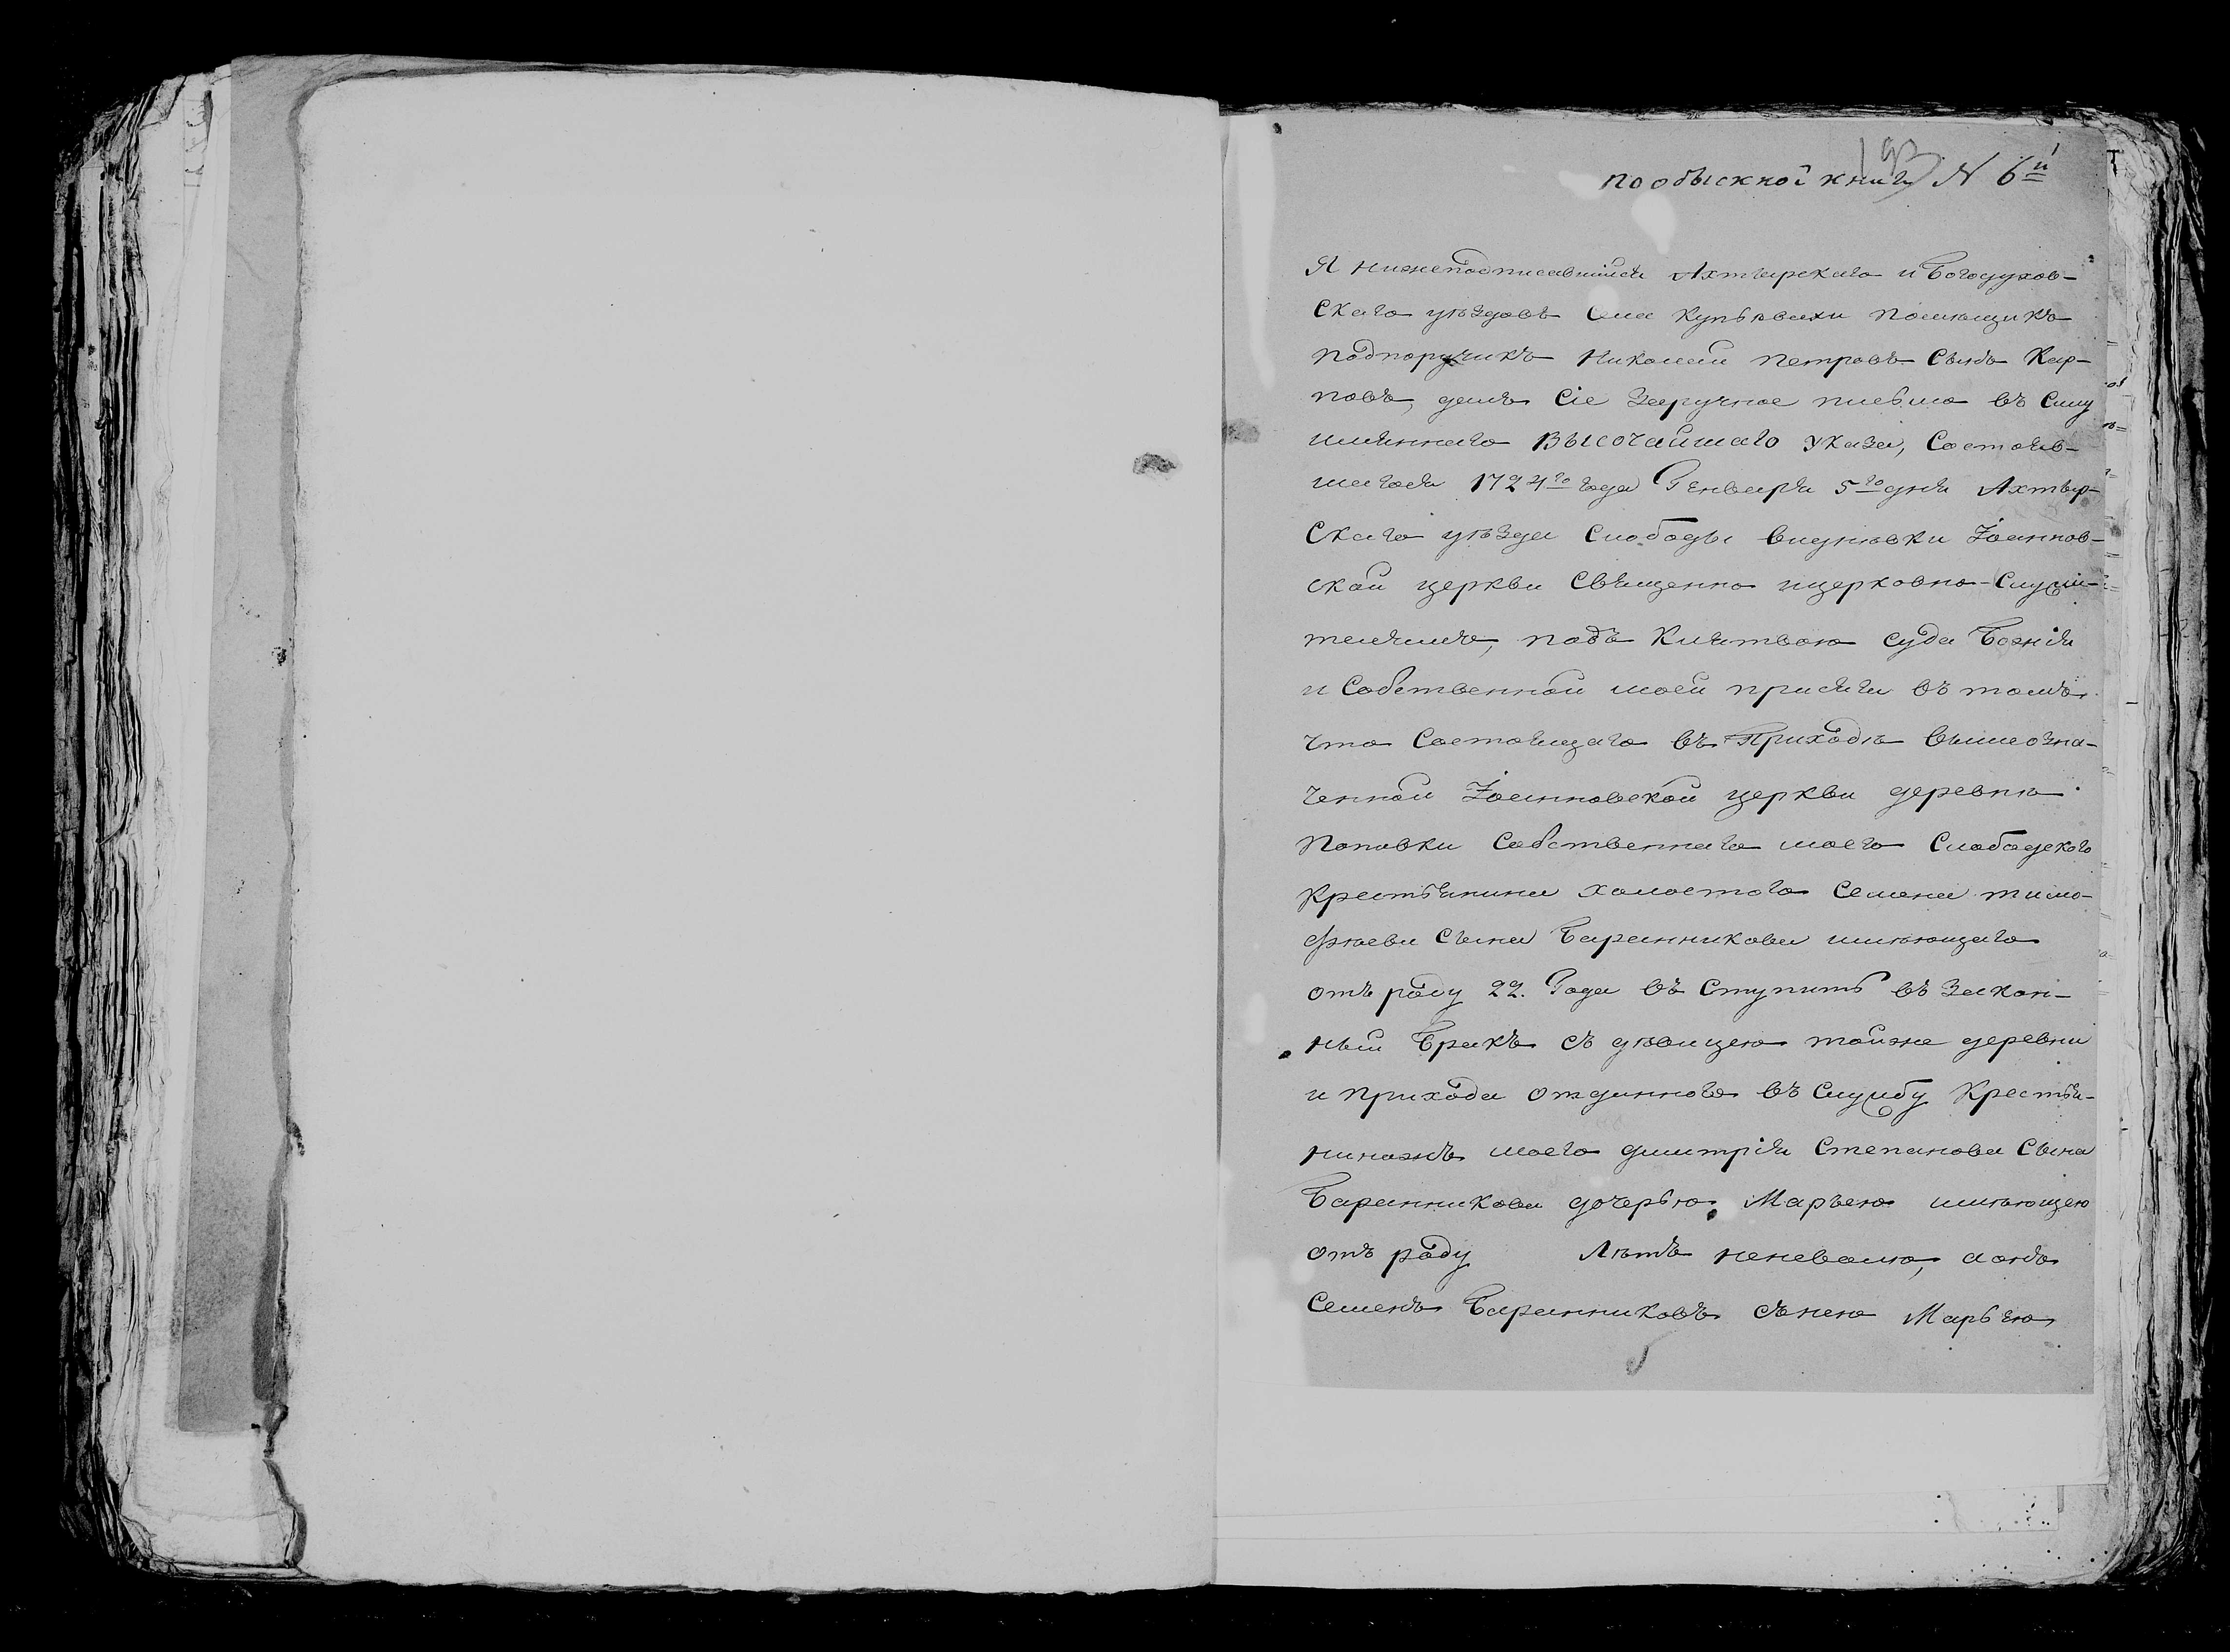 193
по обыскной книги N 6й
Я нижеподписавшійся Ахтырскаго и Богодухов-
скаго уѣздовъ Села Купьевахи Помѣщикъ
подпоручикъ Николай Петровъ Сынъ Кар-
повъ, далъ Сіе Заручное письмо въ Силу
имяннаго Высочайшаго Указа, Состояв-
шагося 1724го года Генваря 5го дня Ахтыр-
Скаго уѣзда Слободы Видновки Іоаннов-
ской церкви Священно ицерковно-Служи-
телямъ, подъ Клятвою Суда Божія
и Собственной моей присяги въ томъ
что Состоящаго въ Приходѣ вышеозна-
ченной Іоанновской церкви деревнѣ
Поповки Собственнаго моего Слободскаго
Крестьянина холостого Семена тимо-
фѣева Сына Баранникова имѣющаго
отъ роду 22. Года въ Ступить въ Закон-
ный Бракъ съ дѣвицею тойже деревни
и прихода отданного въ Службу Крестья-
нинажъ моего дмитрія Степанова Сына
Баранникова дочерью Марьею имѣющею
отъ роду лѣтъ неневолю, а онъ
Семенъ Баранниковъ сънею Марьею